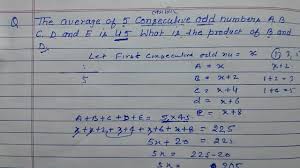 Q The average of 5 Consecutive odd numbers A, B
C, D and E is 45 What is the product of B and
D.
Let First Consecutive odd no = x
A = x
x+2
5
B = x+2
C = x+4
d = x+6
A+B+C+D+E = 5×45
e = x+8
x+x+2+x+4+x+6+x+8 = 225
5x+20 = 225
5x = 225-20
5x = 205